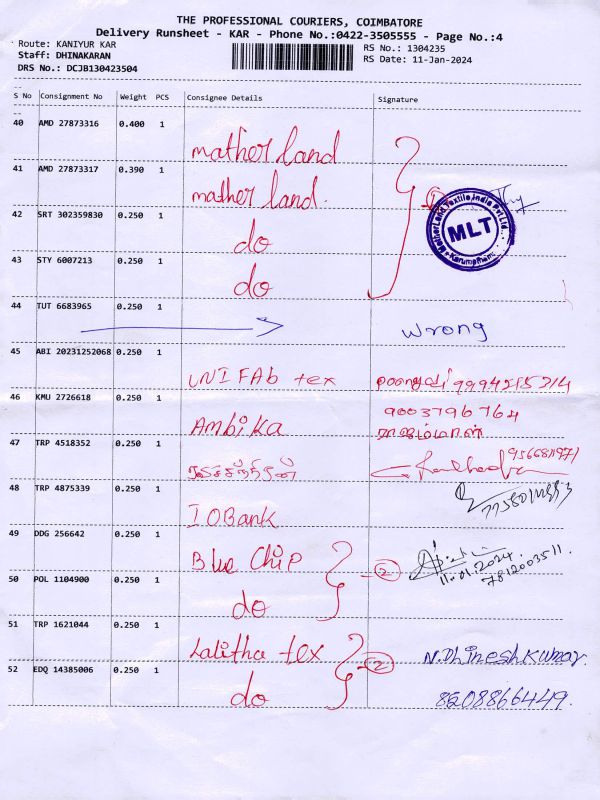 THE PROFESSIONAL COURIERS, COIMBATORE
Delivery Runsheet - KAR - Phone No.:0422-3505555 - Page No.:4
Route: KANIYUR KAR
RS No.: 1304235
Staff: DHINAKARAN
RS Date: 11-Jan-2024
DRS No.: DCJB130423504
S No Consignment No Weight PCS Consignee Details Signature
40 AMD 27873316 0.400 1 mather land
41 AMD 27873317 0.390 1 mather land.
42 SRT 302359830 0.250 1 do
43 STY 6007213 0.250 1 do
MLT
44 TUT 6683965 0.250 1 wrong
45 ABI 20231252068 0.250 1 UNIFAb tex 9994215214
46 KMU 2726618 0.250 1 Ambika 9003796764
ராஜம்மாள்
47 TRP 4518352 0.250 1
48 TRP 4875339 0.250 1 IOBank
49 DDG 256642 0.250 1 Blue Chip 2 11.01.2024.
7812003511.
50 POL 1104900 0.250 1 do
51 TRP 1621044 0.250 1 Lalitha tex 2 N.Dhineshkumar
52 EDQ 14385006 0.250 1 do 8208866449.